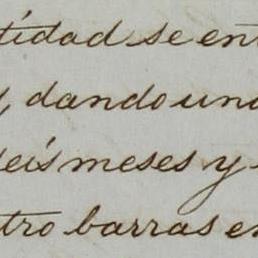 tidad se ent
, dando una
seis meses y
tro barras en